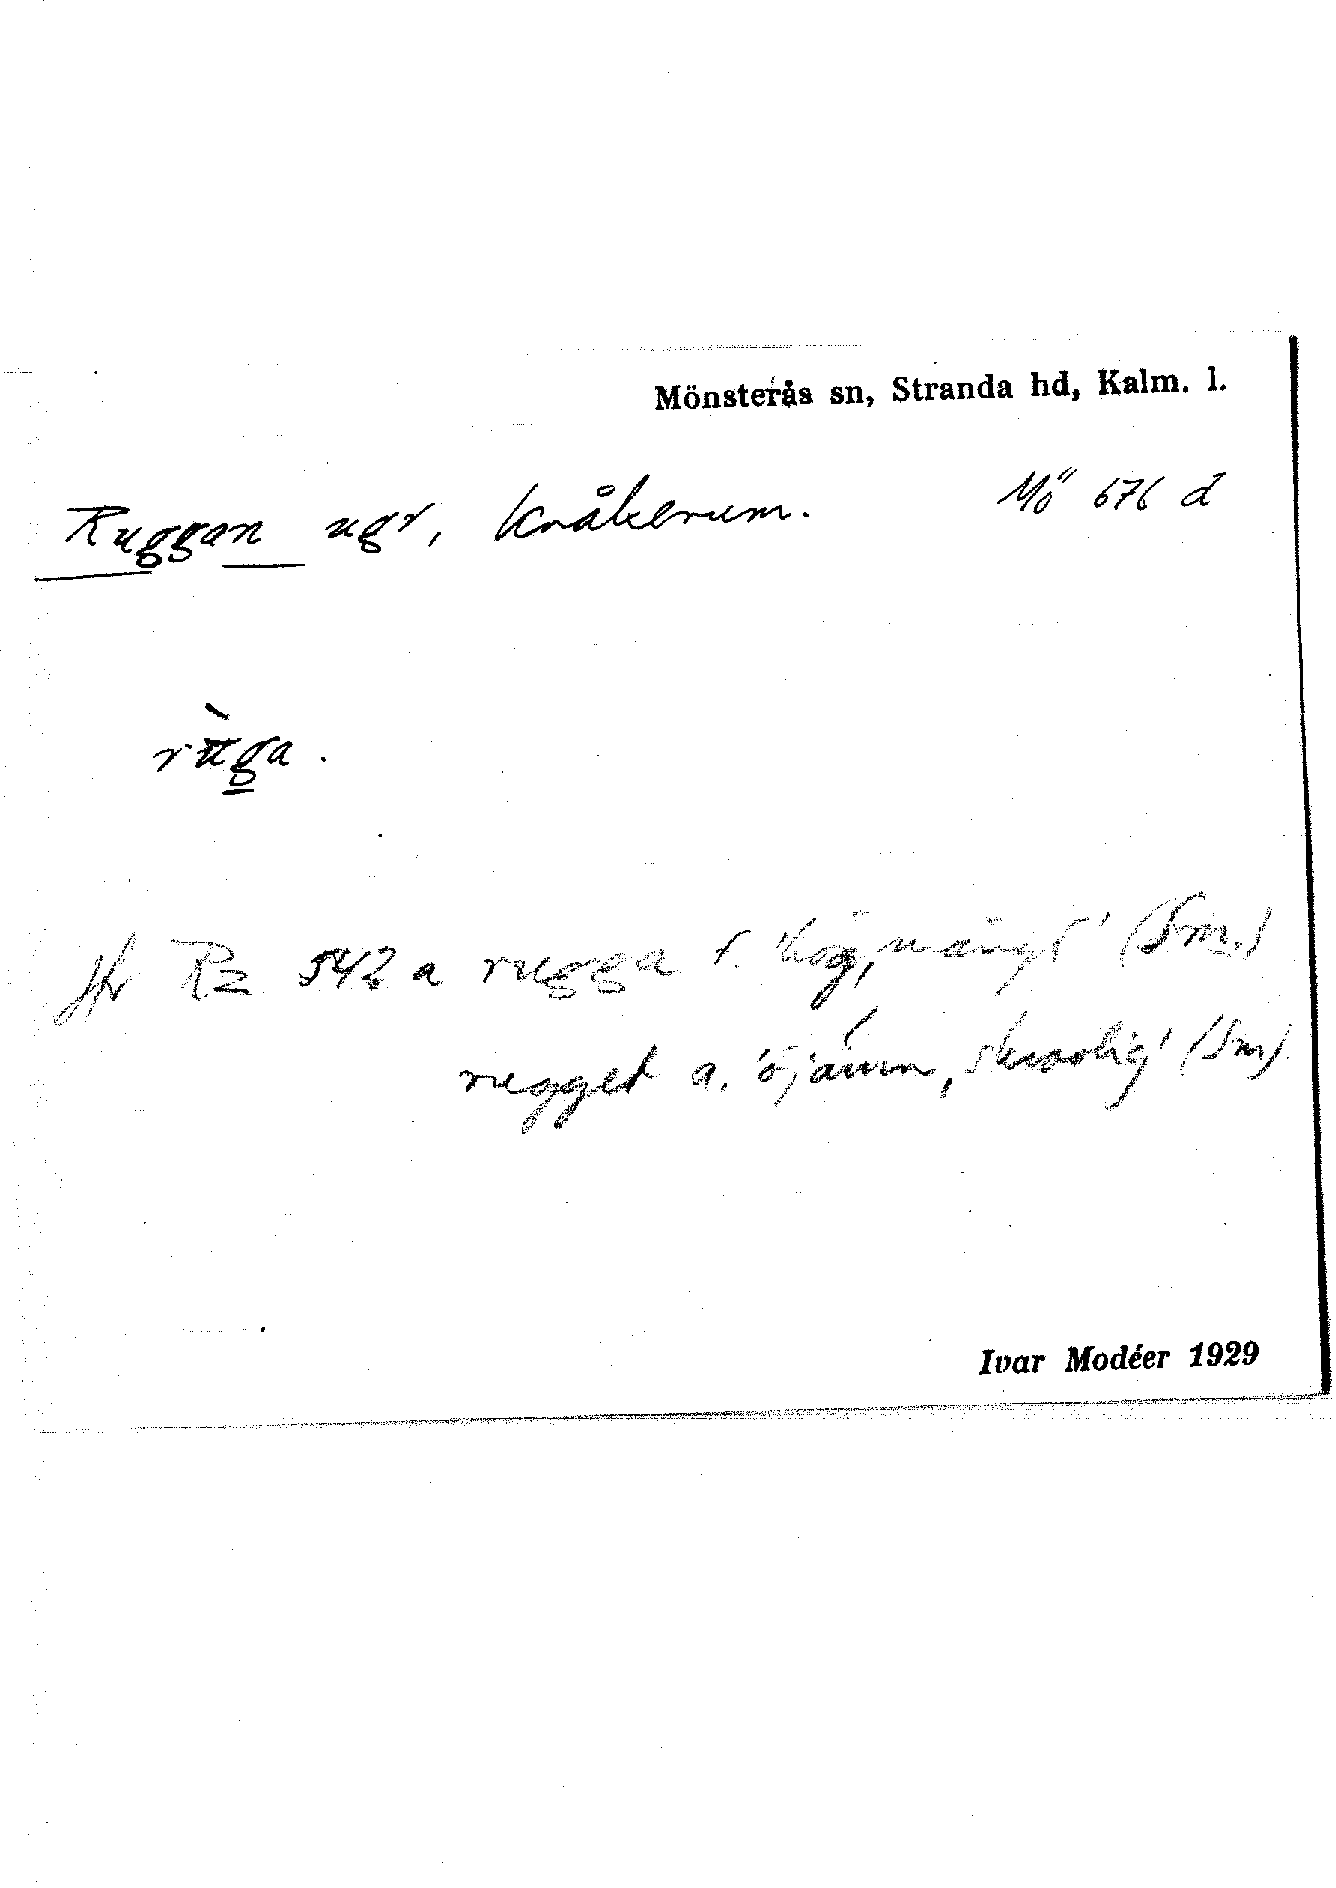 Mönsterås sn, Stranda hd, Kalm. l.
Ruggan ugr, Kråkerum. Mö 676 d
rùga.
Jfr Rz 542 a rugga f. 'hög, mängd' (Sm.)
rugget a. 'ojämn, skrovlig' (Sm).
Ivar Modéer 1929